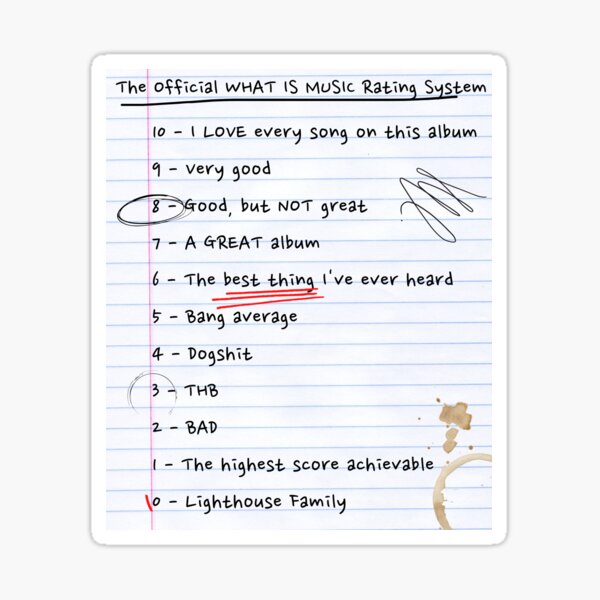 The Official WHAT IS MUSIC Rating System
10 - I LOVE every song on this album
9 - very good
8 - Good, but NOT great
7 - A GREAT album
6 - The best thing I've ever heard
5 - Bang average
4 - Dogshit
3 - THB
2 - BAD
1 - The highest score achievable
0 - Lighthouse Family